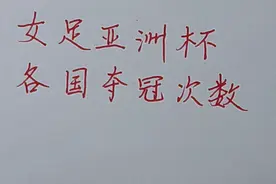 女足亚洲杯
各国夺冠次数